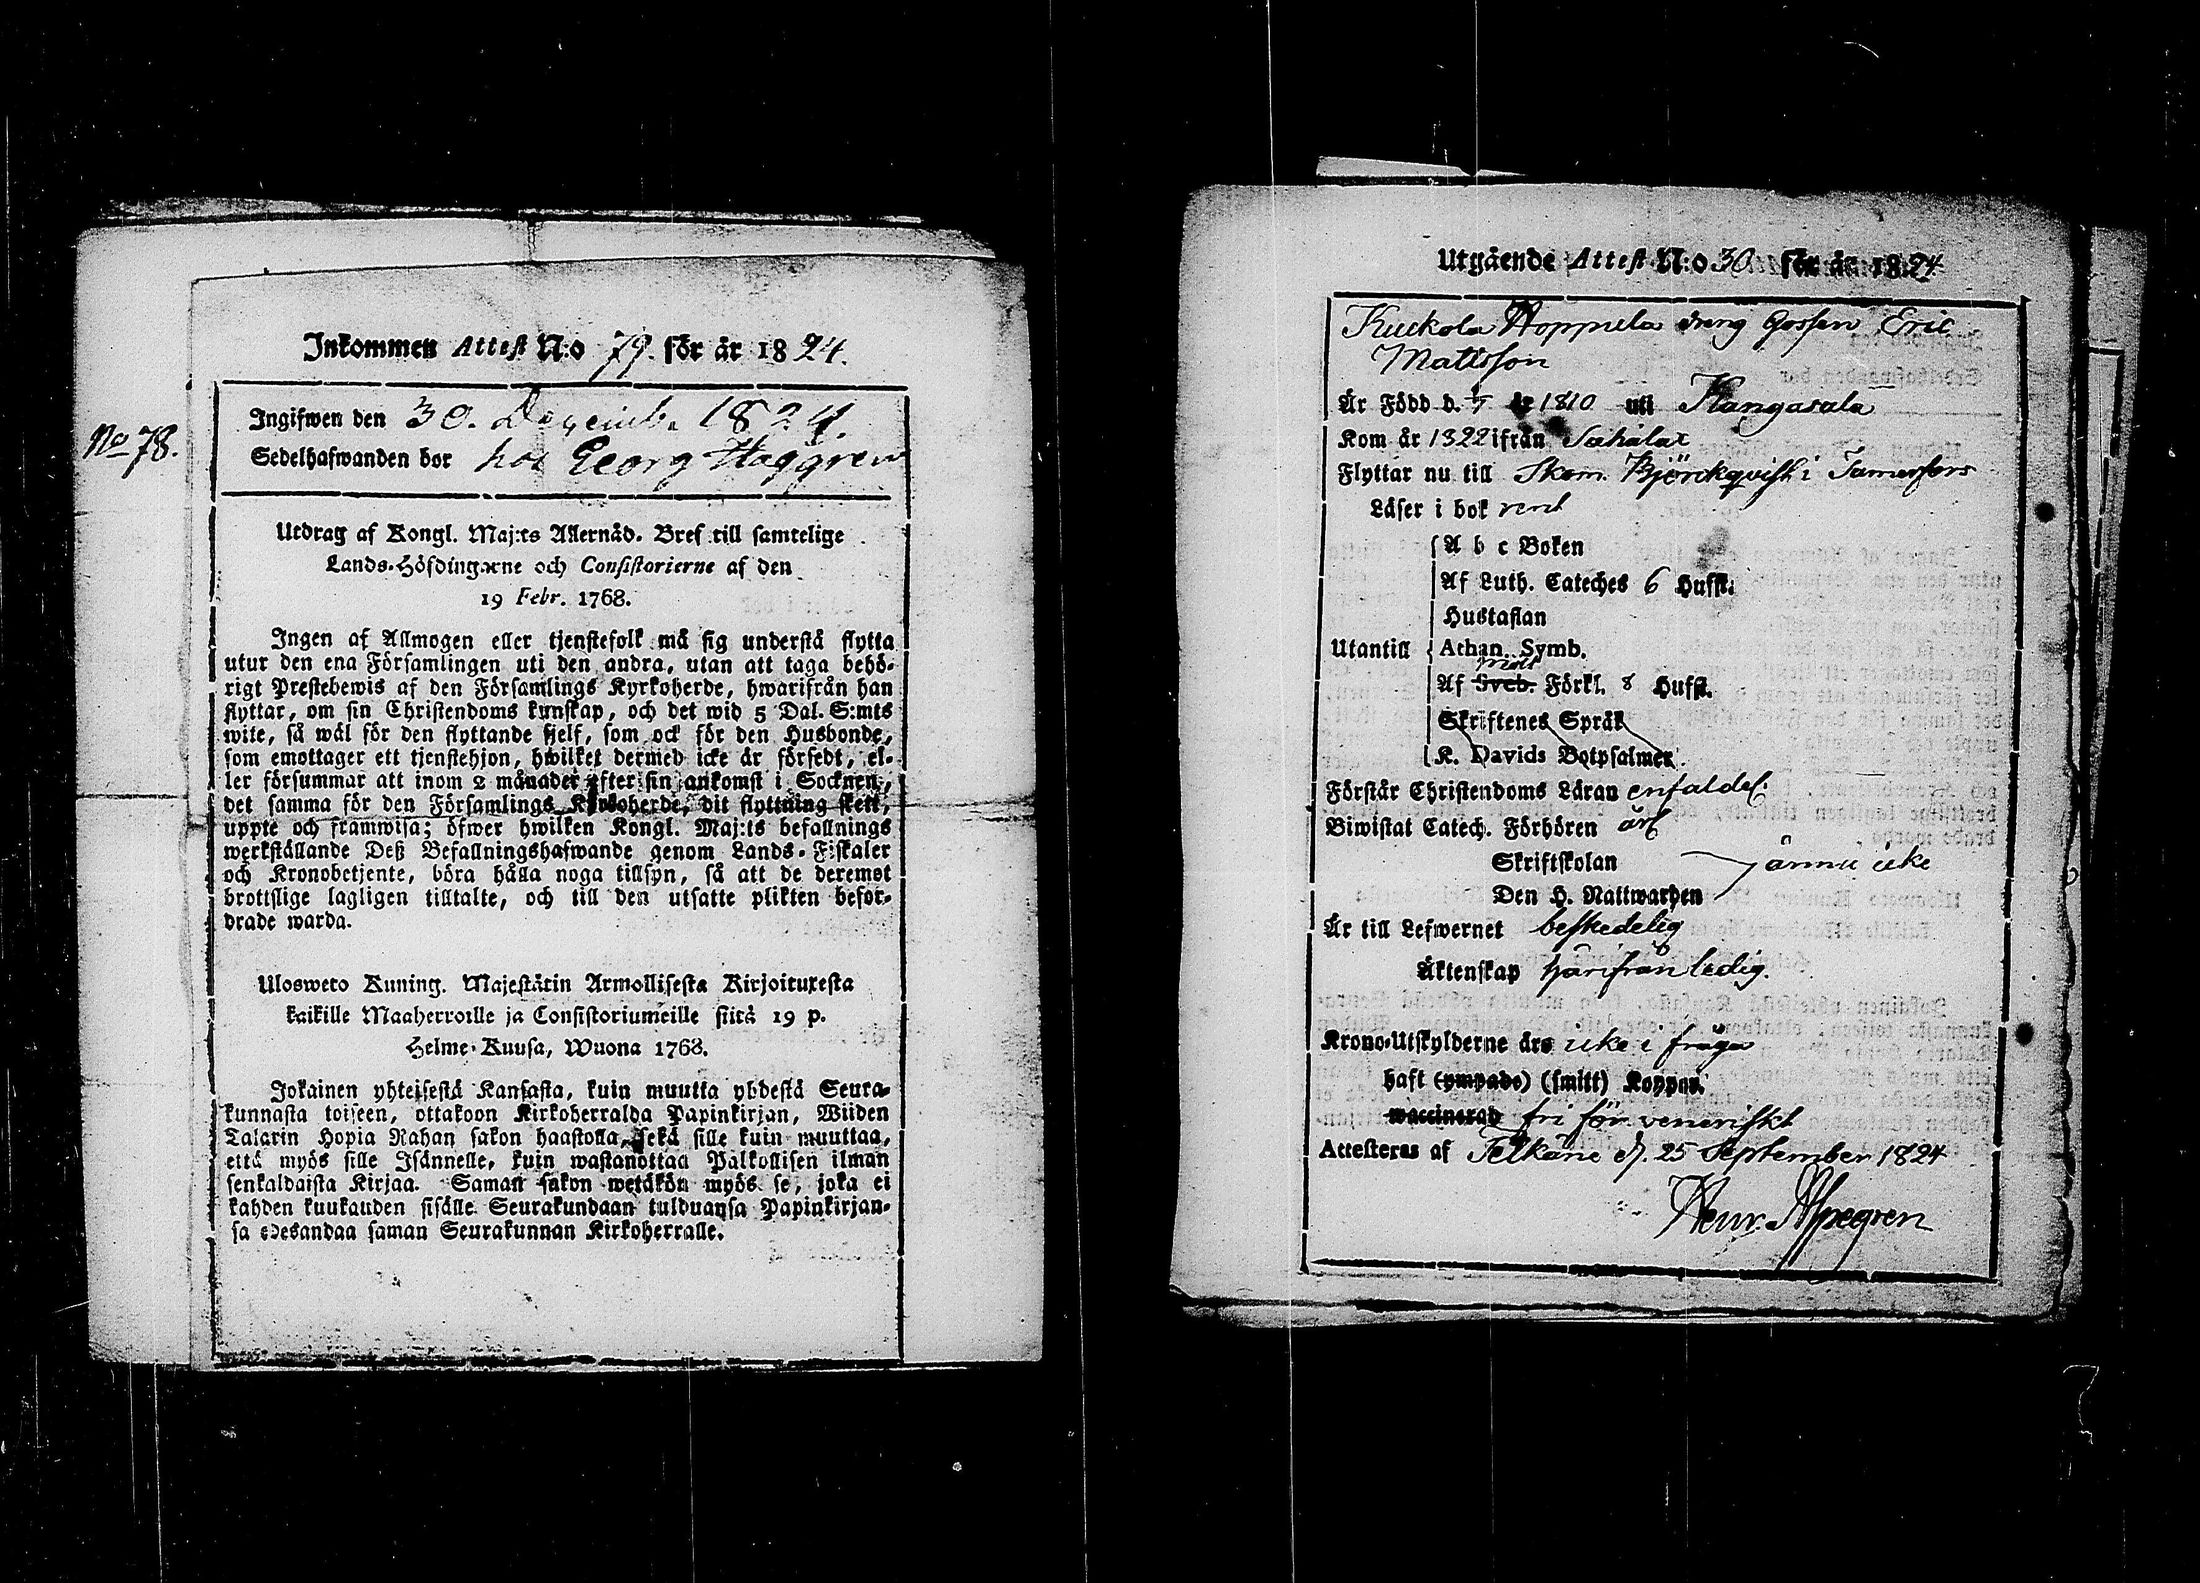 Inkommen Attest N:o 79. för år 1824.
No 78.
Ingifwen den 30. Decemb. 1824.
Sedelhafwanden bor hos Georg Häggren
Utdrag af Kongl. Maj:ts Allernåd. Bref till samtelige
Lands-Höfdingarne och Consistorierne af den
19 Febr. 1768.
Ingen af Allmogen eller tjenstefolk må sig understå flytta
utur den ena Församlingen uti den andra, utan att taga behö-
rigt Prestebewis af den Församlings Kyrkoherde, hwarifrån han
flyttar, om sin Christendoms kunskap, och det wid 5 Dal. S:mts
wite, så wäl för den flyttande sjelf, som ock för den Husbonde,
som emottager ett tjenstehjon, hwilket dermed icke är försedt, el-
ler försummar att inom 2 månader efter sin ankomst i Socknen,
det samma för den Församlings Kyrkoherde, dit flyttning skett,
uppte och framwisa; öfwer hwilken Kongl. Maj:ts befallnings
werkställande Deß Befallningshafwande genom Lands-Fiskaler
och Kronobetjente, böra hålla noga tillsyn, så att de deremot
brottslige lagligen tilltalte, och till den utsatte plikten befor-
drade warda.
Ulosweto Kuning. Majestätin Armollisesta Kirjoituxesta
kaikille Maaherroille ja Consistoriumeille siitä 19 p.
Helme-Kuusa, Wuona 1768.
Jokainen yhteisestä Kansasta, kuin muutta yhdestä Seura-
kunnasta toiseen, ottakoon Kirkoherralda Papinkirjan, Wiiden
Talarin Hopia Rahan sakon haastolla, sekä sille kuin muuttaa,
että myös sille Isännelle, kuin wastanottaa Palkollisen ilman
senkaldaista Kirjaa. Saman sakon wetäkön myös se, joka ei
kahden kuukauden sisälle Seurakundaan tulduansa Papinkirjan-
sa edesandaa saman Seurakunnan Kirkoherralle.
Utgående Attest N:o 30 för år 1824
Kuckola Hoppula dreng Gossen Eric
Mattsson
Är Född d. år 1810 uti Kangasala
Kom år 1822 ifrån Sahalax
Flyttar nu till Skom. Björckqvist i Tamerfors
Läser i bok rent
A b c Boken
Af Luth. Cateches 6 Hufst.
Hustaflan
Utantill Athan. Symb.
Af Sveb. Förkl. 8 Hufst.
Skriftenes Språk
K. Davids Botpsalmer.
Förstår Christendoms Läran enfaldel.
Biwistat Catech. Förhören årl
Skriftskolan
ännu icke
Den H. Nattwarden
Är till Lefwernet beskedelig
Äktenskap härifrån ledig.
Krono-Utskylderne äro icke i fråga
haft (ympade) (smitt) Koppor.
waccinerad fri för veneriskt
Attesteras af Pelkäne d. 25 September 1824
Henr. Alpegren